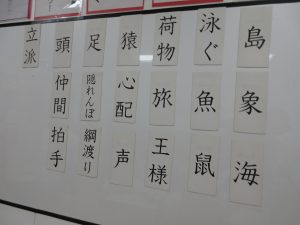 島
象
海
泳ぐ
魚
鼠
荷物
旅
王様
猿
心配
声
足
隠れんぼ
綱渡り
頭
仲間
拍手
立派